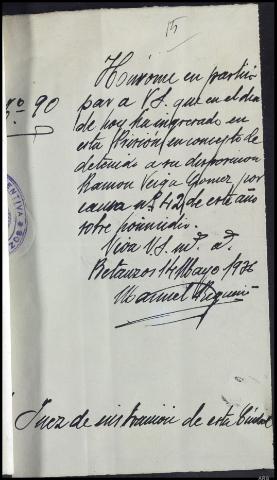 15
Hónrome en partici
par a V.S. que en el dia
de hoy ha ingresado en
esta Prision en concepto de
detenido a su disposicion
Ramon Veiga Gomez, por
causa nº 42 de este año
sobre
Viva V.S. mˢ aˢ.
Betanzos 14 Mayo 1936
Manuel
Nº 90
ENTIVA
Juez de instruccion de esta Ciudad